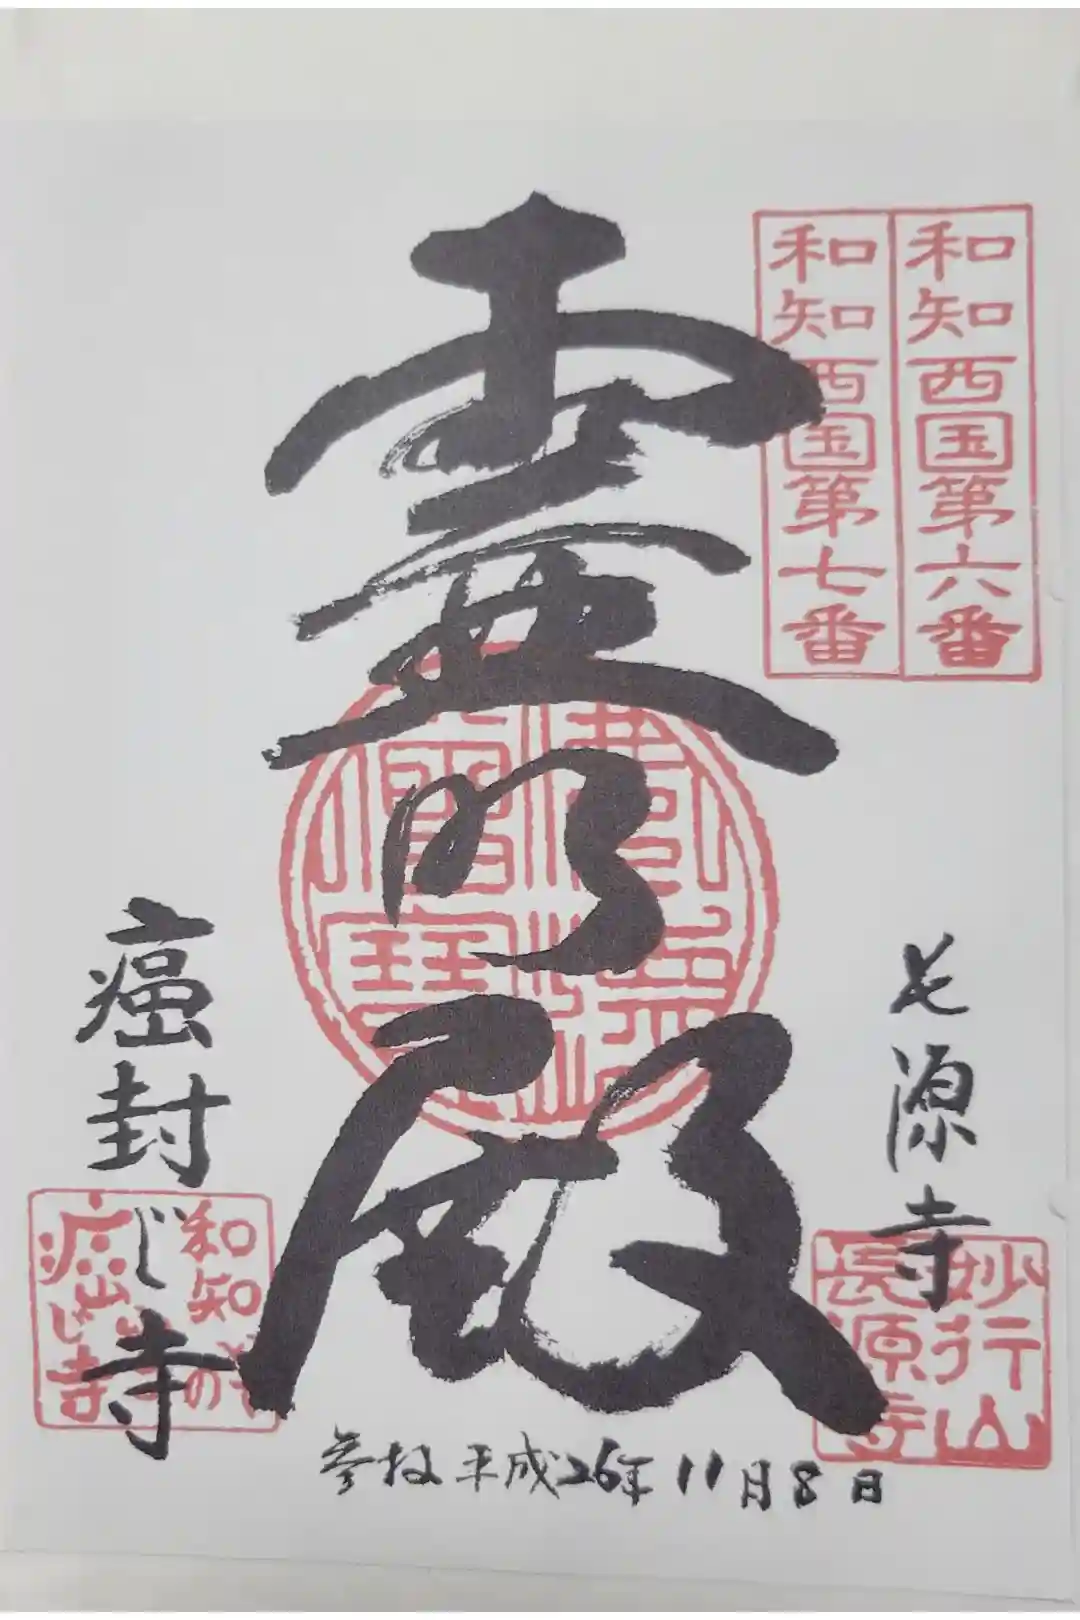 和知西国第六番
和知西国第七番
靈明殿
長源寺
妙行山
長源寺
癌封じ寺
和知
癌封じ寺
参拝 平成26年11月8日